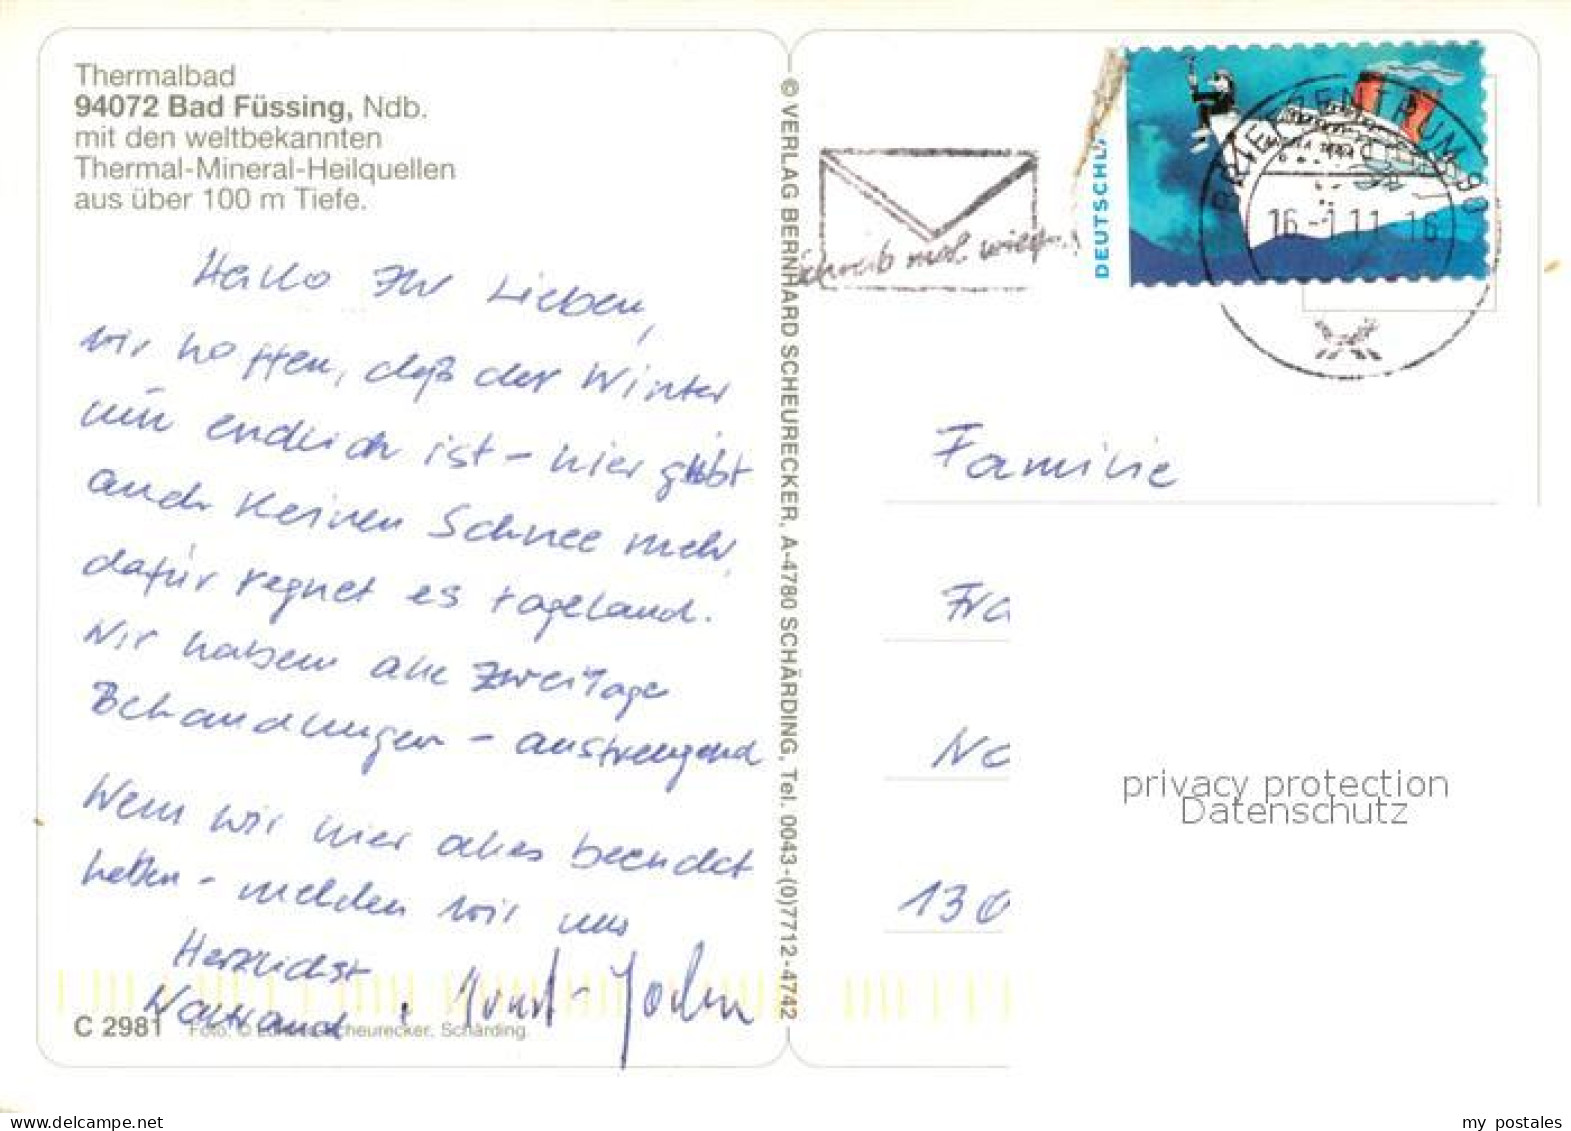 Thermalbad
94072 Bad Füssing, Ndb.
mit den weltbekannten
Thermal-Mineral-Heilquellen
aus über 100 m Tiefe.
Hallo Ihr Lieben,
wir hoffen, daß der Winter
nun endlich ist - hier gibt
auch keinen Schnee mehr,
dafür regnet es tageland.
Wir haben alle zwei Tage
Behandlungen - anstrengend
Wenn wir hier alles beendet
haben - melden wir uns
Herzlichst
Waltraud
C 2981 Foto: © Scheurecker, Schärding
© VERLAG BERNHARD SCHEURECKER, A-4780 SCHÄRDING, Tel. 0043-(0)7712-4742
schreib mal wieder
DEUTSCHL
BRIEFZENTRUM
16.-1.11 16
Familie
Fra
No
130
privacy protection
Datenschutz
www.delcampe.net
my_postales